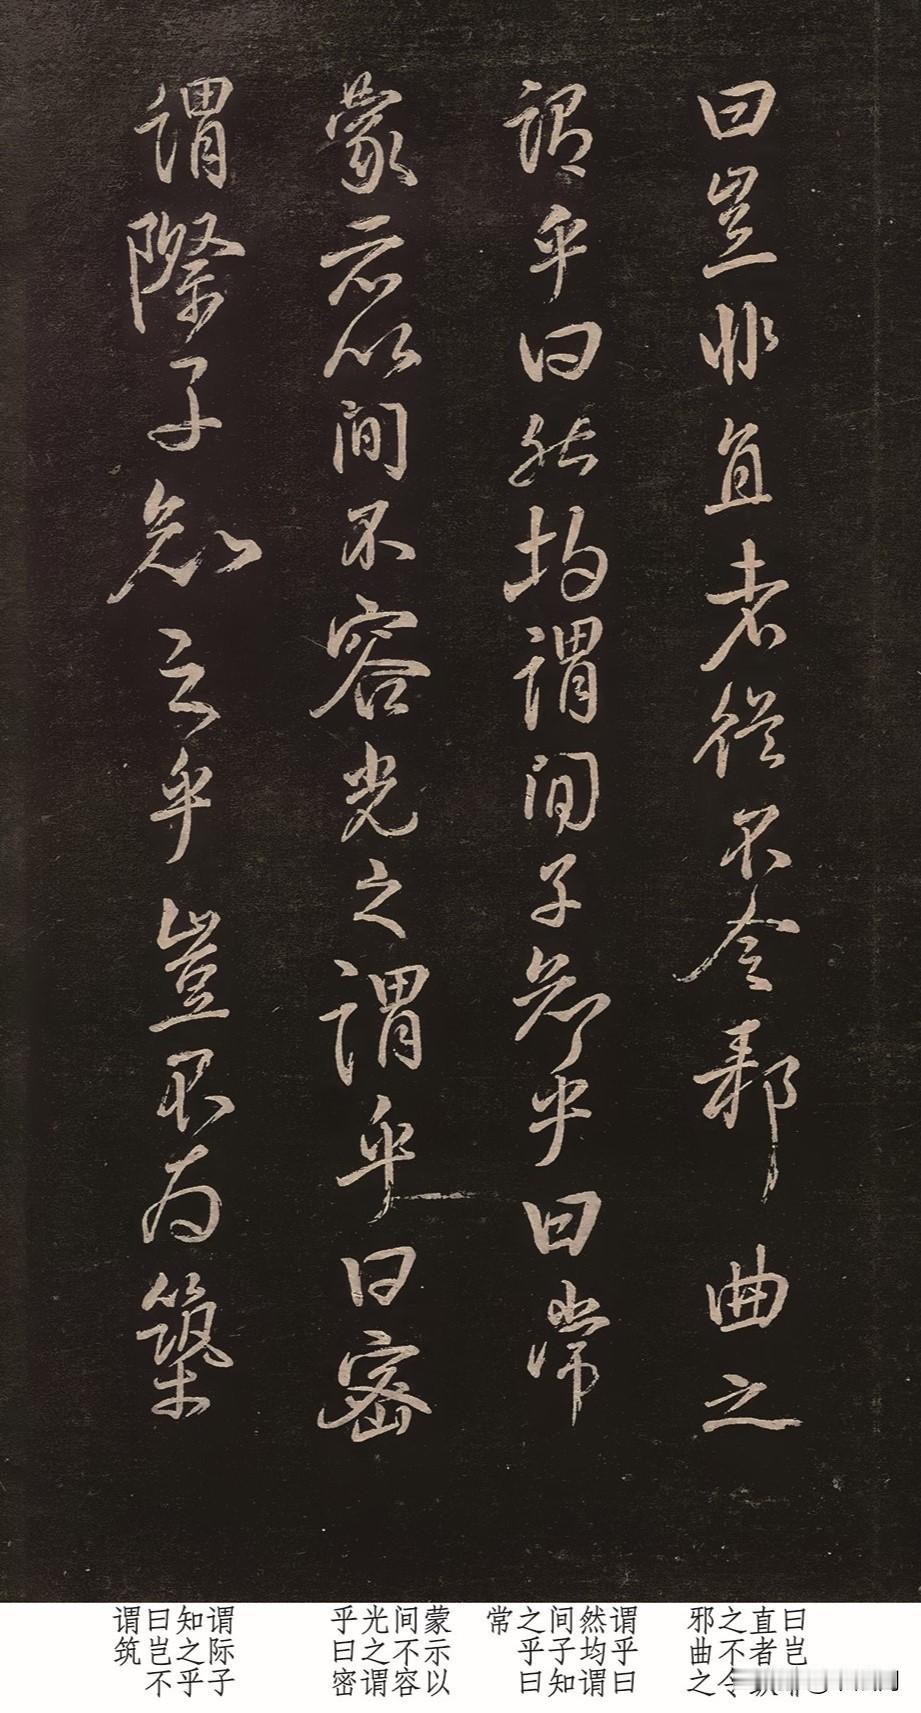 曰豈非直者從不令邪曲之
謂乎曰然均謂間子知乎曰常
蒙示以間不容光之謂乎曰密
謂際子知之乎豈不為築
曰岂
直者
之不令
邪曲之
谓乎曰
然均谓
间子知
之乎曰
常
蒙示以
间不容
光之谓
乎曰密
谓际子
知之乎
曰岂不
谓筑